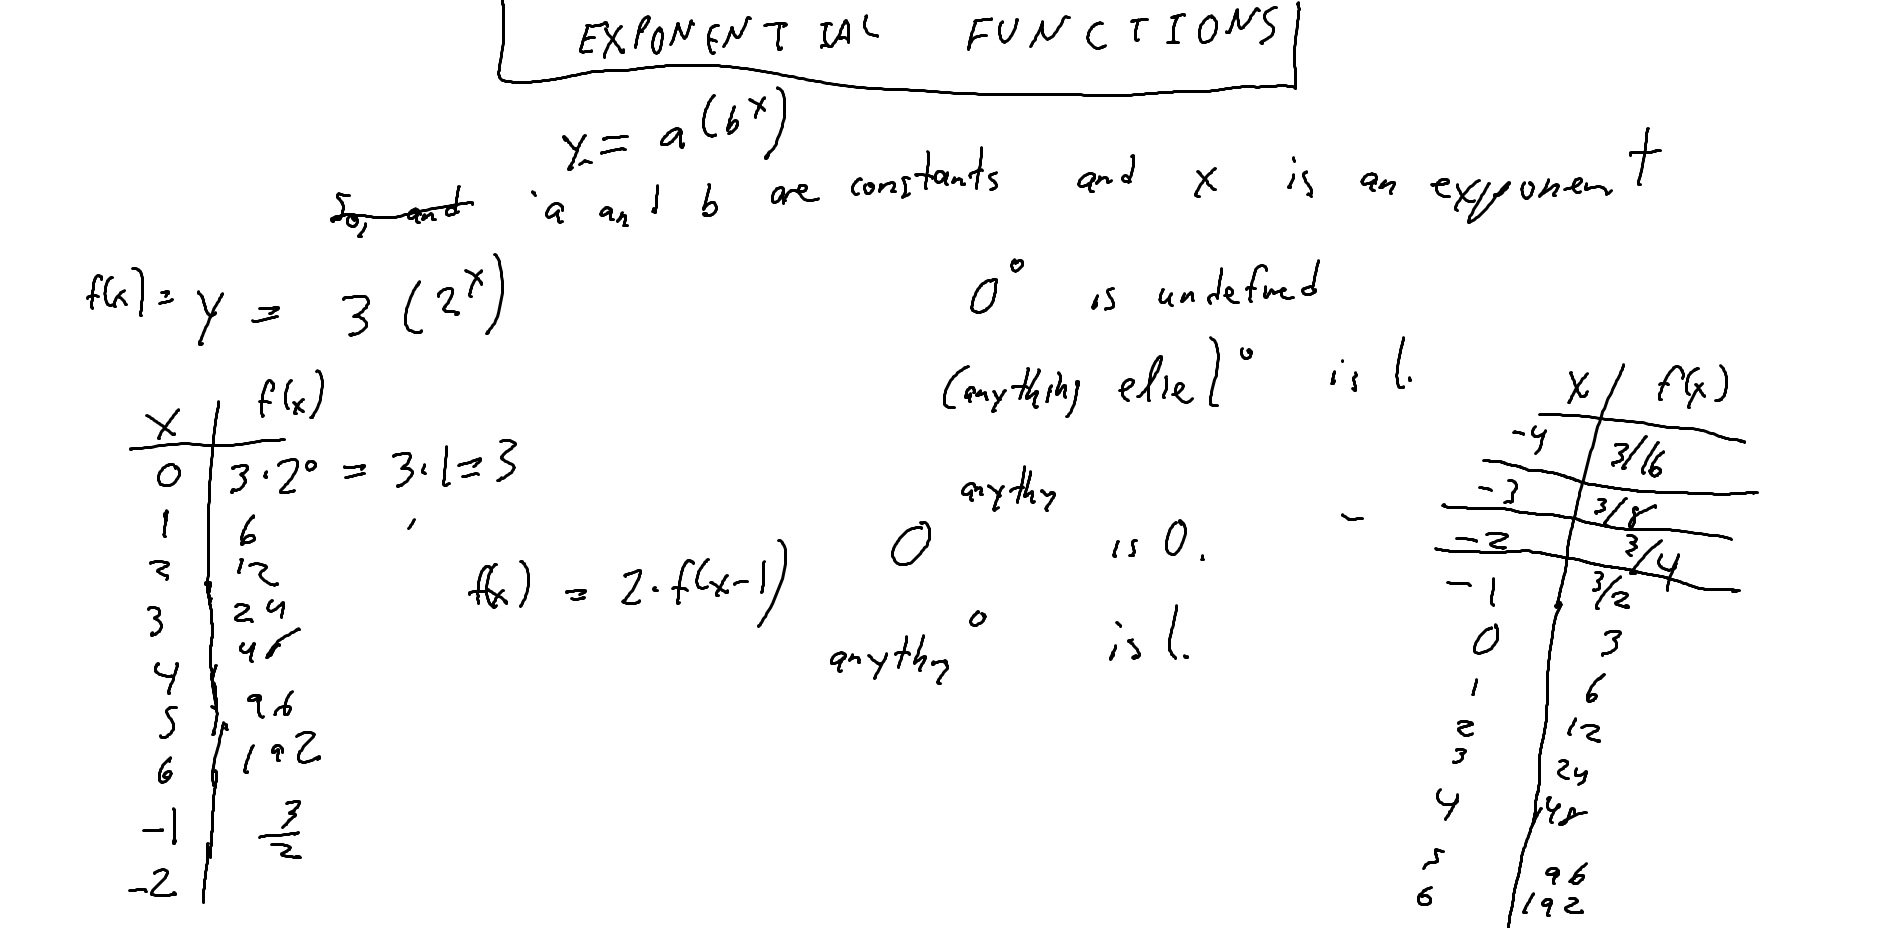 EXPONENTIAL FUNCTIONS
y = a(b^x)
So, and a and b are constants and x is an exponent
f(x) = y = 3(2^x)
0^0 is undefined
(anything else)^0 is 1.
x | f(x)
0 | 3·2^0 = 3·1 = 3
1 | 6
2 | 12
3 | 24
4 | 48
5 | 96
6 | 192
-1 | 3/2
-2 |
f(x) = 2·f(x-1)
0^anythn is 0.
anythn^0 is 1.
-
x | f(x)
-4 | 3/16
-3 | 3/8
-2 | 3/4
-1 | 3/2
0 | 3
1 | 6
2 | 12
3 | 24
4 | 48
5 | 96
6 | 192